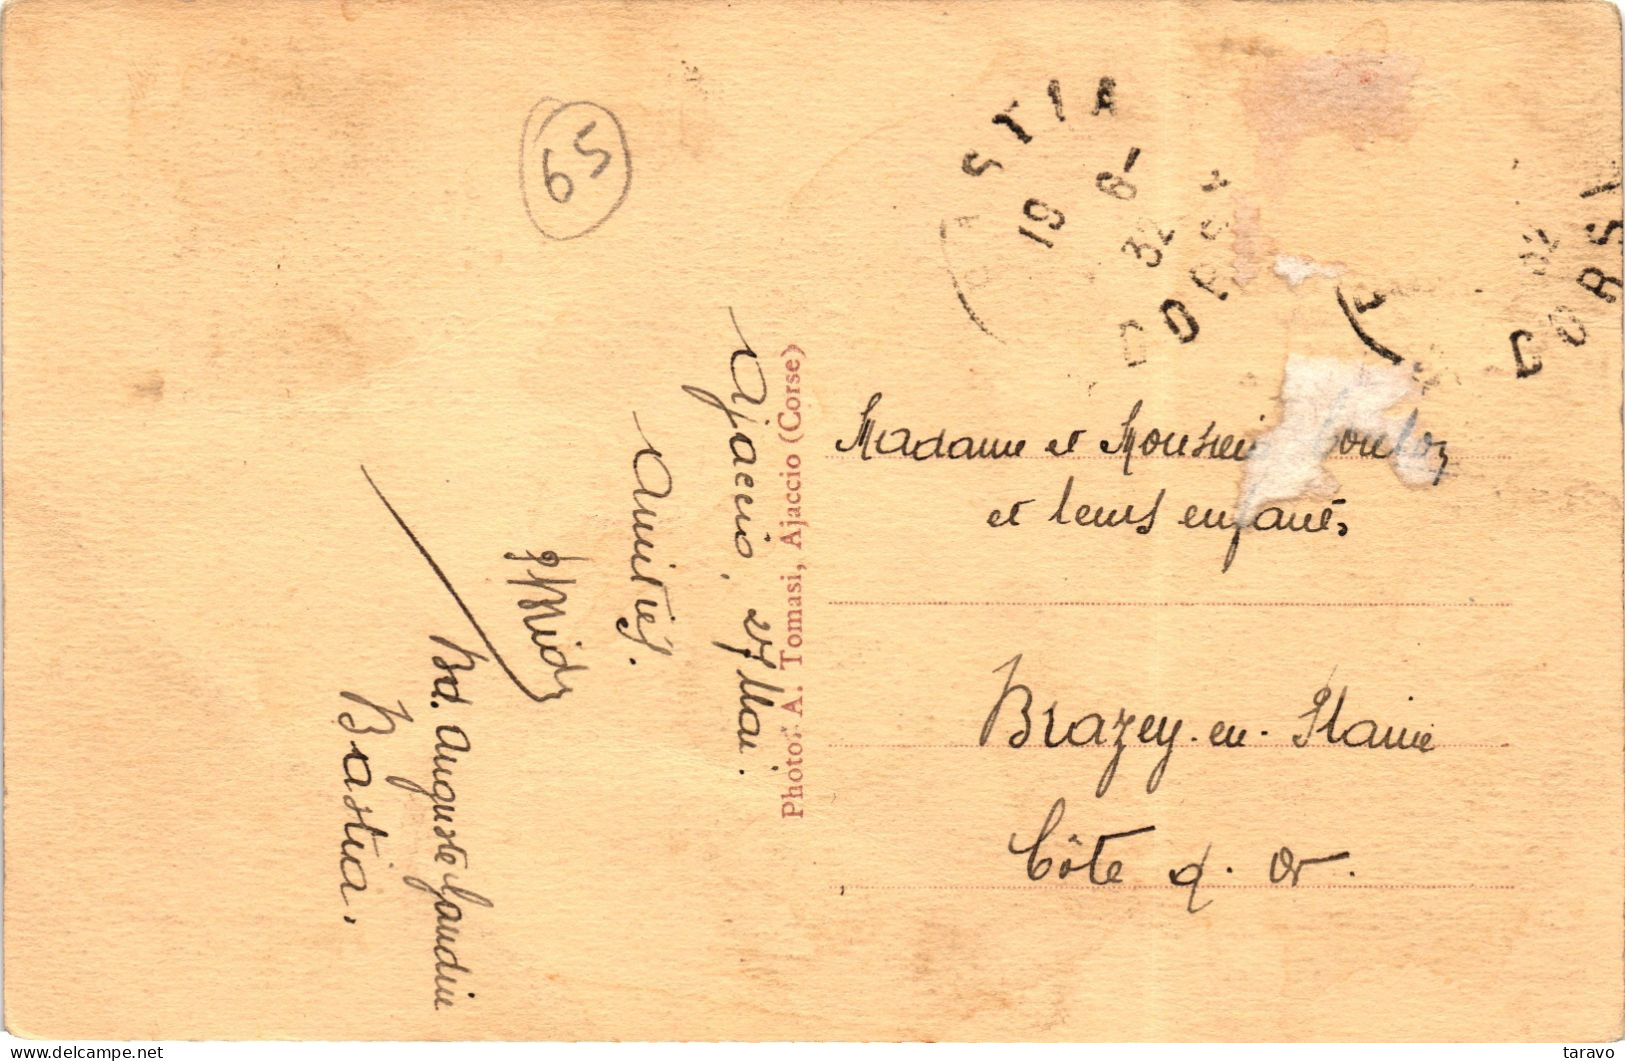 65
Ajaccio, 27 Mai.
Amitiés.
Bd. Auguste Gaudin
Bastia.
Photo: A. Tomasi, Ajaccio (Corse)
BASTIA
19 6-
32
CORSE
32
CORSE
Madame et Monsieur
et leurs enfants
Brazey-en-Plaine
Côte d'Or.
taravo